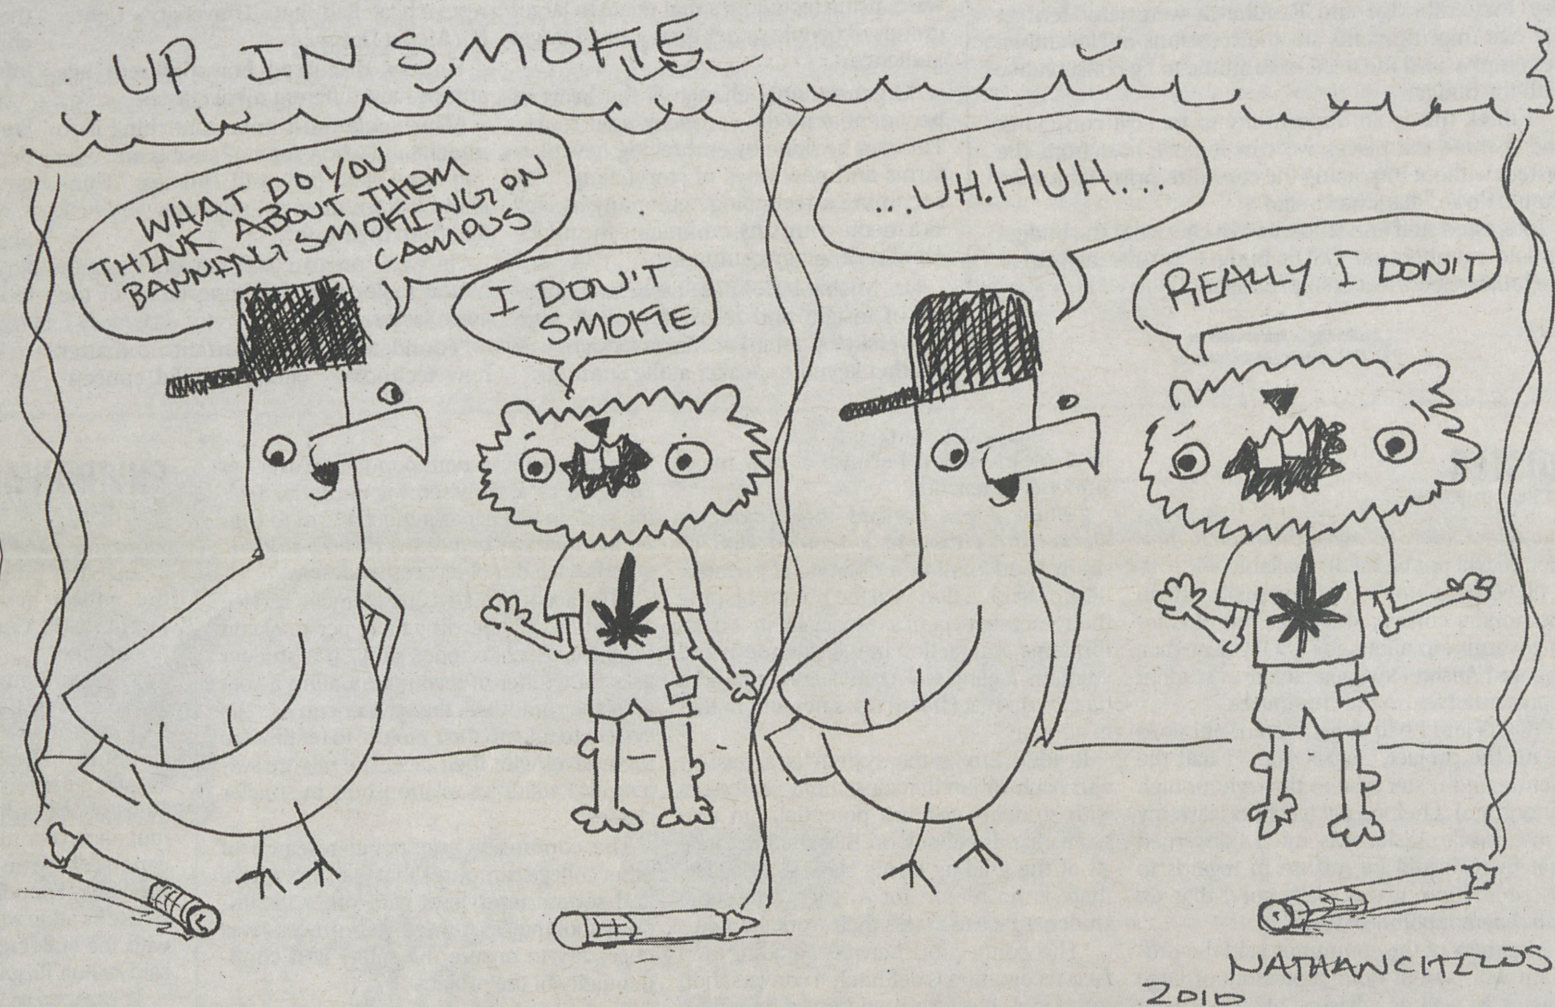 UP IN SMOKE
WHAT DO YOU
THINK ABOUT THEM
BANNING SMOKING ON
CAMOUS
I DON'T
SMOKE
...UH.HUH....
REALLY I DON'T
NATHANCHILDS
2010